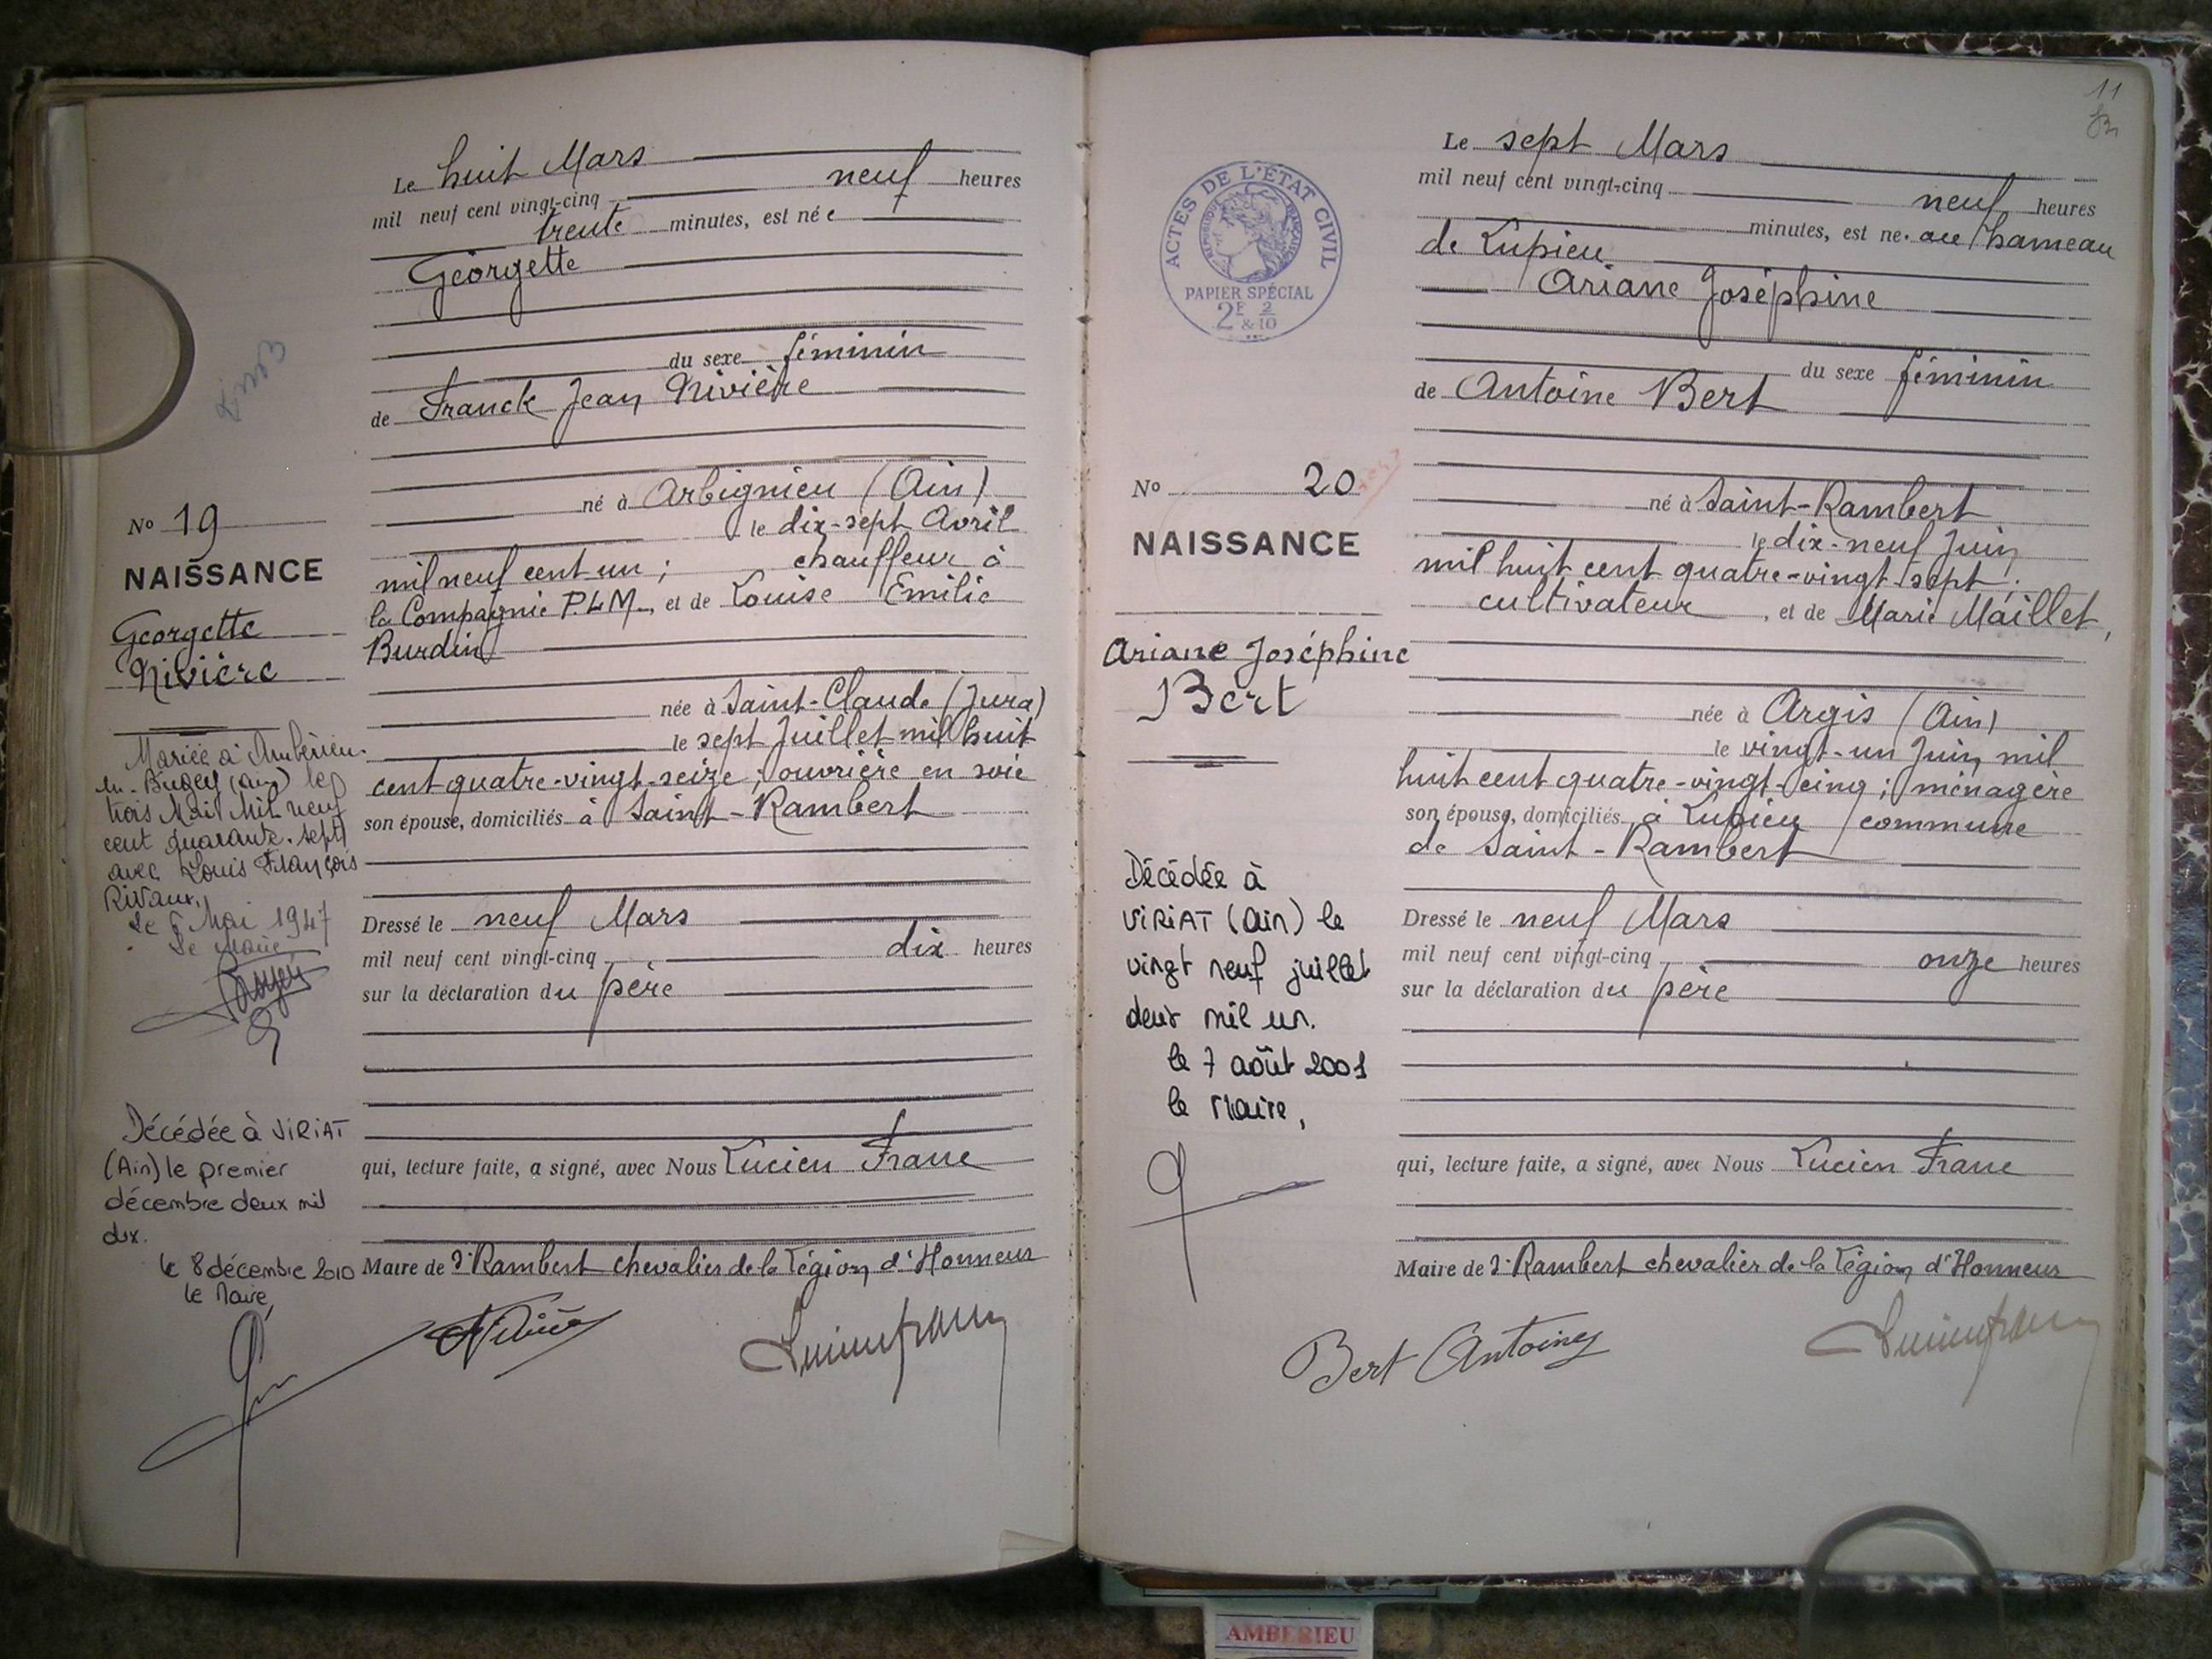 Le huit Mars
mil neuf cent vingt-cinq neuf heures
trente minutes, est née
Georgette
du sexe féminin
de Franck Jean Nivière
né à Arbignieu (Ain)
le dix-sept Avril
mil neuf cent un ; chauffeur à
la Compagnie P.L.M., et de Louise Emilie
Burdin
née à Saint-Claude (Jura)
le sept Juillet mil huit
cent quatre-vingt-seize ; ouvrière en soie
son épouse, domiciliés à Saint-Rambert
Dressé le neuf Mars
mil neuf cent vingt-cinq dix heures
sur la déclaration du père
qui, lecture faite, a signé, avec Nous Lucien Franc
Maire de St Rambert chevalier de la Légion d'Honneur
No 19
NAISSANCE
Georgette
Nivière
Mariée à Ambérieu-
en-Bugey (Ain) le
trois Mai Mil neuf
cent quarante-sept
avec Louis François
Rivaux.
Le 6 Mai 1947
Le Maire
Décédée à VIRIAT
(Ain) le premier
décembre deux mil
dix.
le 8 décembre 2010
le Maire,
11
ACTES DE L'ÉTAT CIVIL
RÉPUBLIQUE FRANÇAISE
PAPIER SPÉCIAL
2F 2
& 10
Le sept Mars
mil neuf cent vingt-cinq neuf heures
minutes, est née au hameau
de Lupieu
Ariane Joséphine
du sexe féminin
de Antoine Bert
né à Saint-Rambert
le dix-neuf Juin
mil huit cent quatre-vingt-sept ;
cultivateur, et de Marie Maillet,
née à Argis (Ain)
le vingt-un Juin mil
huit cent quatre-vingt-cinq ; ménagère
son épouse, domiciliés à Lupieu commune
de Saint-Rambert
Dressé le neuf Mars
mil neuf cent vingt-cinq onze heures
sur la déclaration du père
qui, lecture faite, a signé, avec Nous Lucien Franc
Maire de St Rambert chevalier de la Légion d'Honneur
Bert Antoine
No 20
NAISSANCE
Ariane Joséphine
Bert
Décédée à
VIRIAT (Ain) le
vingt neuf juillet
deux mil un.
le 7 août 2001
le Maire,
AMBERIEU